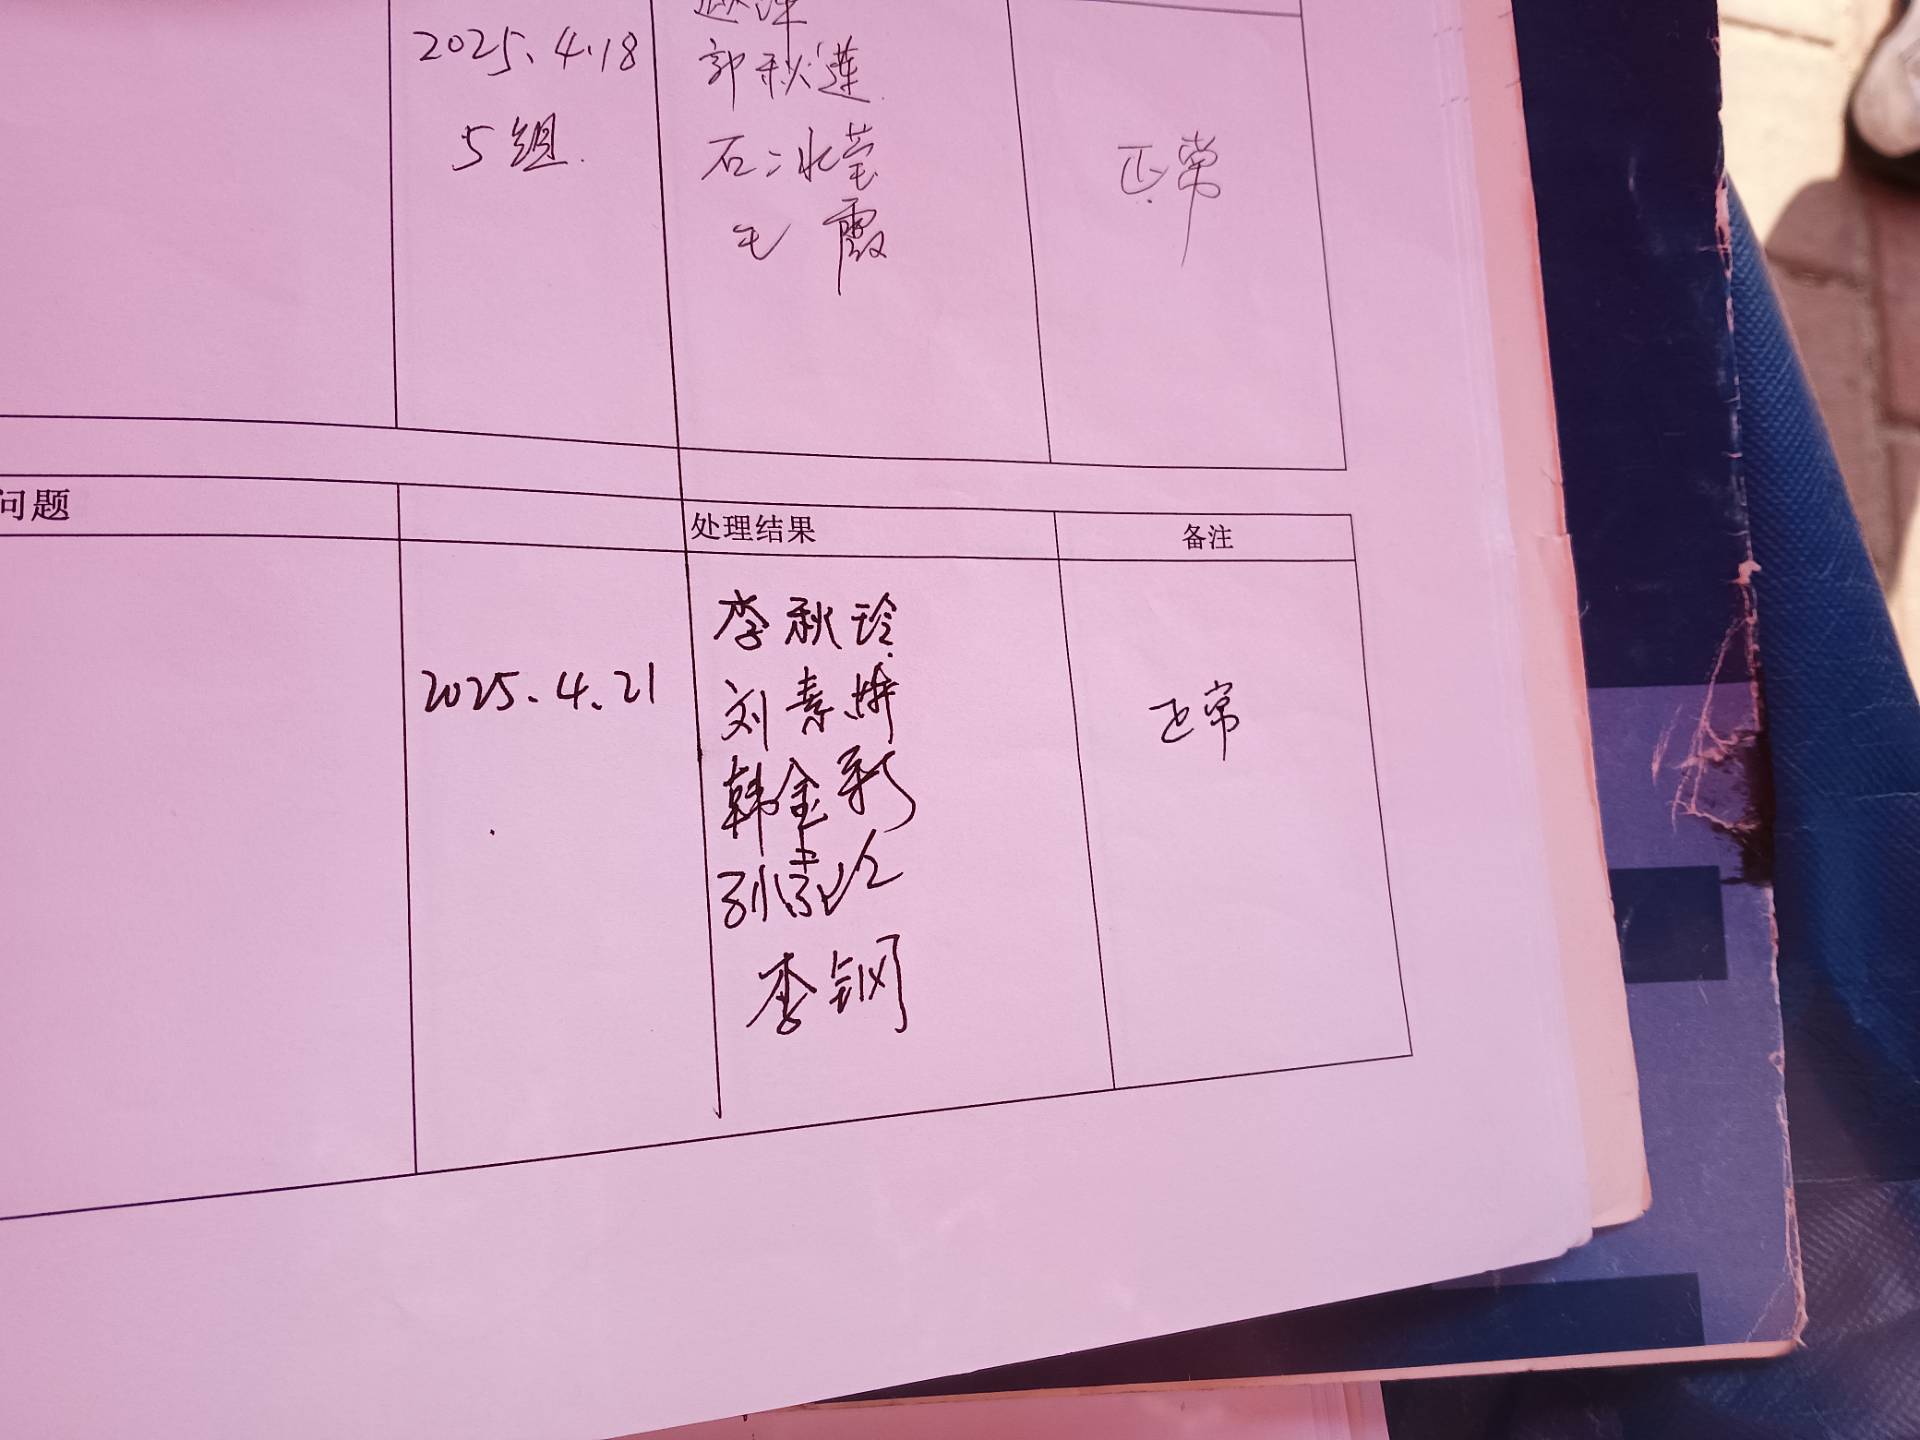 2025.4.18
5组.
郭秋莲
石冰莹
毛霞
正常
问题
处理结果
备注
2025.4.21
李秋玲
刘素婷
韩金彩
李钢
正常